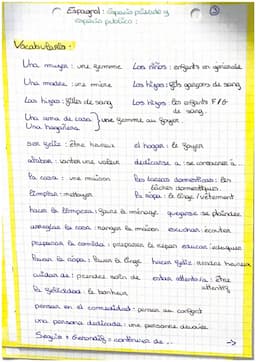 Espagnol : Espacio privado y
espacio publico :
③
Vocabulario :
Una mujer : une femme Los niños : enfants en général
Una madre : une mère Los hijos : fils garçons de sang
Las hijas : filles de sang Los hijos : les enfants F/G
de sang.
Una ama de casa } une femme au foyer.
Una hogareña
ser feliz : être heureux el hogar : le foyer
alabar : vanter une valeur dedicarse a : se consacrer à ...
la casa : une maison las tareas domesticas : les
tâches domestiques.
limpiar : nettoyer la ropa : le linge / vêtement
hacer la limpieza : faire le ménage quejarse se plaindre
arreglar la casa : ranger la maison escuchar : écouter
preparar la comida : préparer le repas educar : éduquer
lavar la ropa : laver le linge hacer feliz : rendre heureux
cuidar de : prendre soin de estar atento/a : être
attentif
la felicidad : le bonheur
pensar en el comodidad : penser au confort
una persona dedicada : une personne dévouée.
Seguir + Gerondif = continuer de ... →